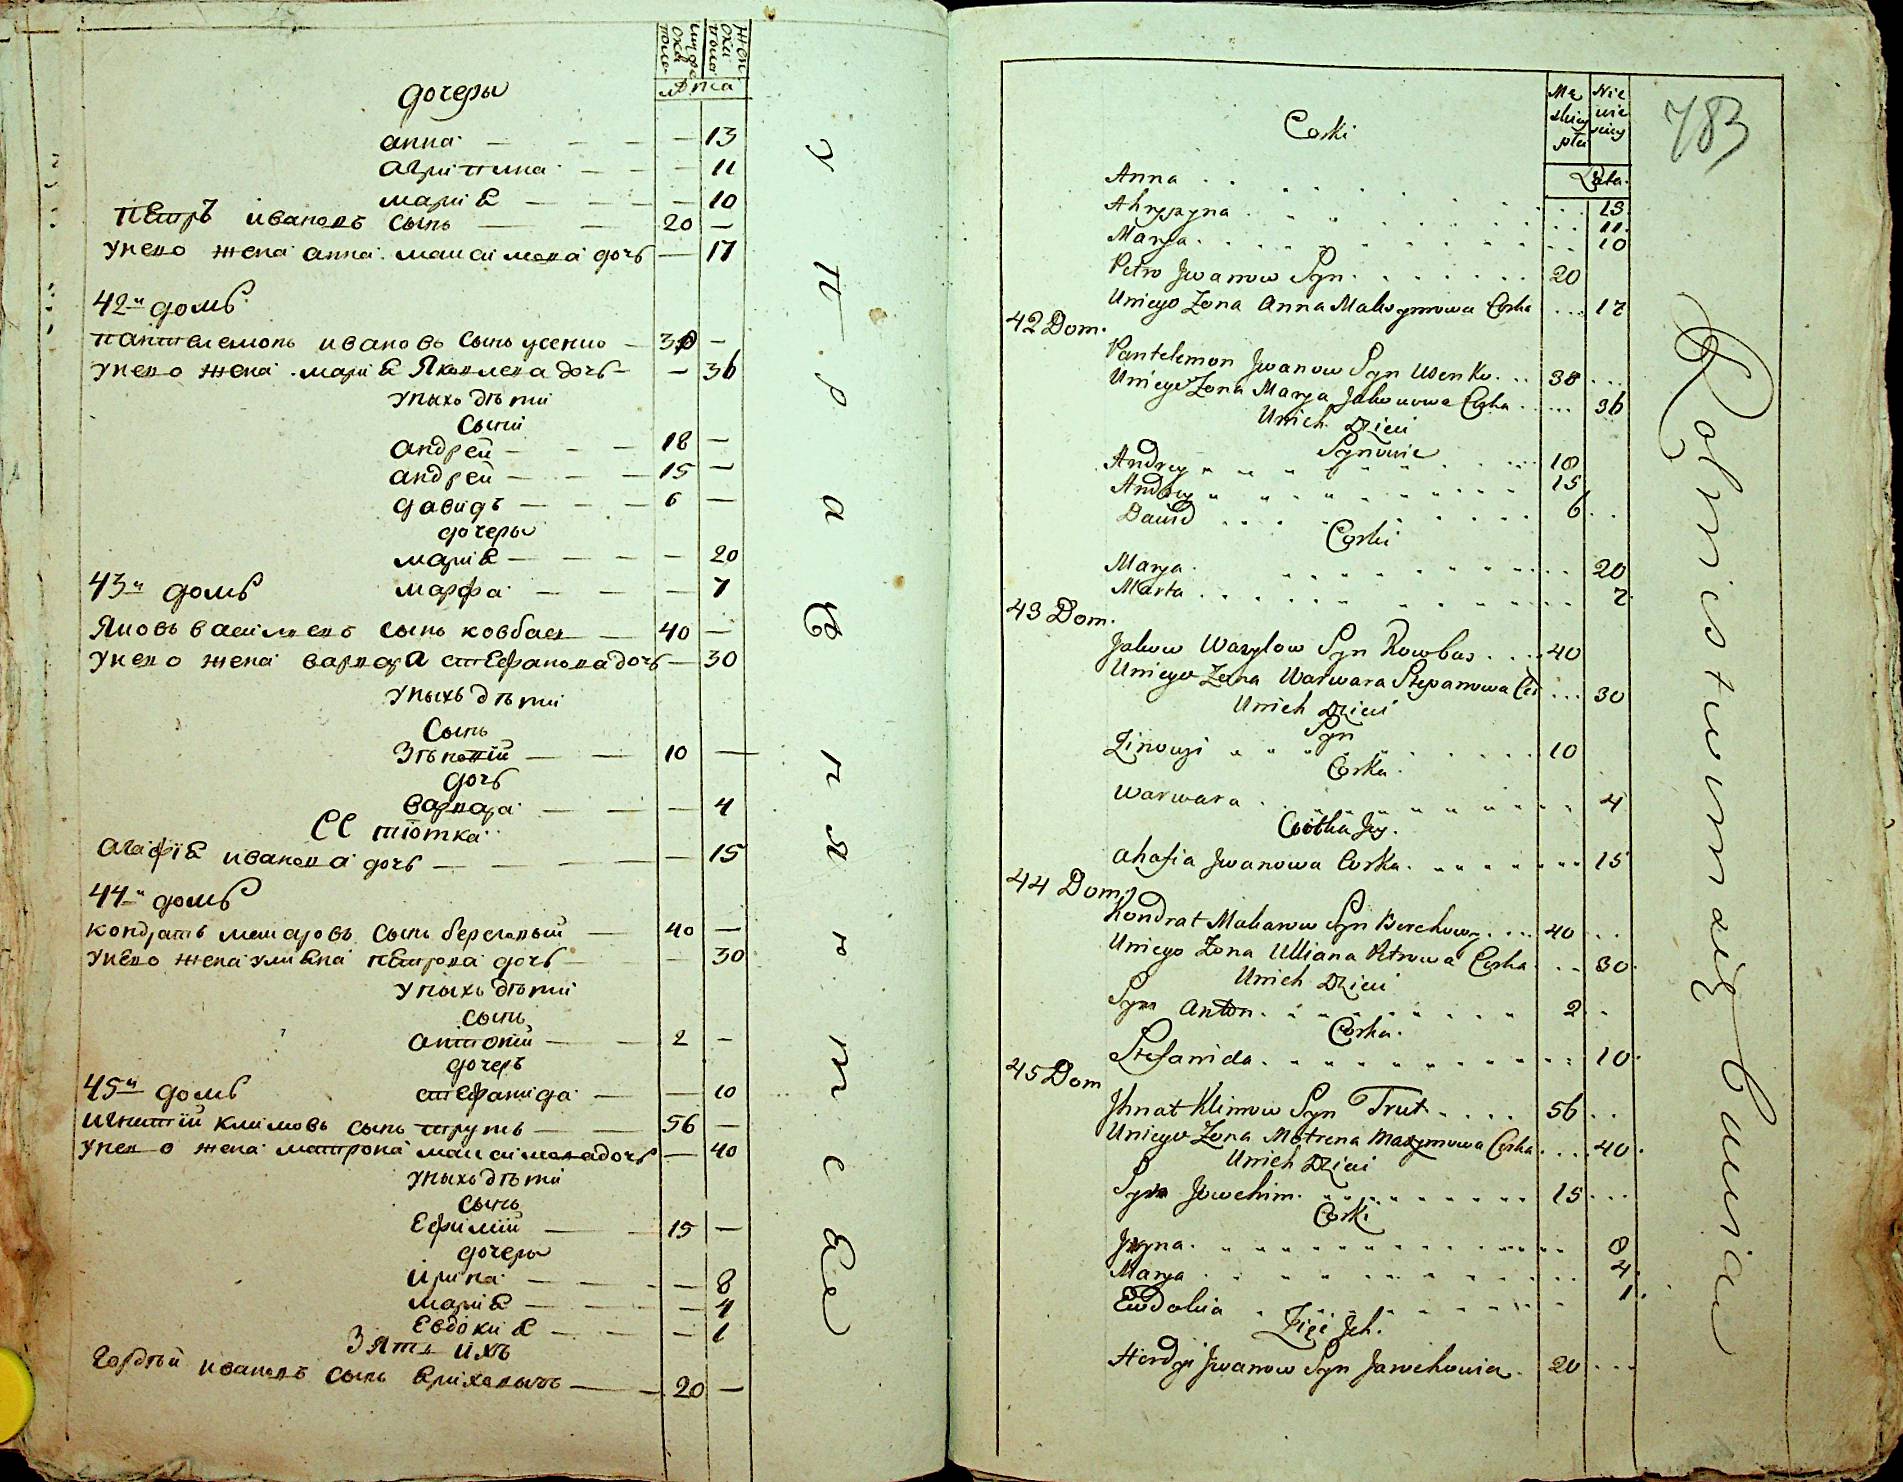 дочеры
мужеска пола
женска пола
лѣта
анна — — — — 13
агрипина — — — 11
маріѣ — — — — 10
пѣтръ ивановъ сынъ — — 20 —
унего жена анна максимова дочъ — 17
42й домъ
пантелемонъ ивановъ сынъ усенко — 38 —
унего жена маріѣ Яковлева дочъ — — 36
унихъ дѣти
сыни
андрей — — — 18 —
андрей — — — 15 —
давидъ — — — 6 —
дочеры
маріѣ — — — — 20
43й домъ марфа — — — 7
Яковъ василиевъ сынъ ковбаса — 40 —
унего жена варвара стефанова дочъ — 30
унихъ дѣти
Сынъ
Зѣновій — — 10 —
дочъ
варвара — — — 4
ЕЕ тіотка
агафіѣ иванова дочъ — — — 15
44й домъ
кондратъ макаровъ сынъ береговый — 40 —
унего жена улиѣна пѣтрова дочъ — — 30
унихъ дѣти
сынъ
антоній — — 2 —
дочеръ
45й домъ стефанида — — 10
игнатій климовъ сынъ трутъ — — 56 —
унего жена матрона максимова дочъ — 40
унихъ дѣти
сынъ
Ефимій — — 15 —
дочеры
ирина — — — — 8
маріѣ — — — — 4
Евдокиѣ — — — 1
Зять ихъ
гордѣй ивановъ сынъ — — 20 —
783
Męzkiey płci
Niewieściey
Lata.
Corki
Anna
Ahrypyna . . . 13
Marya . . . 11
10
Petro Jwanow Syn . . . 20
Uniego Zona Anna Maksymowa Corka . . . 17
42 Dom.
Pantelemon Jwanow Syn Usenko . . . 38 . . .
Uniego Zona Marya Jakowowa Corka . . . 36
Unich Dzieci
Synowie
Andrey . . . 18
Andrey . . . 15
Dawid . . . 6 . .
Corki
Marya . . . 20
Marta . . . 7
43 Dom.
Jakow Wasylow Syn Kowbas . . . 40
Uniego Zona Warwara Stepanowa Cor . . . 30
Unich Dzieci
Syn
Zinowyi . . . 10
Corka.
Warwara . . . 4
Ciotka Jey.
Ahafia Jwanowa Corka . . . 15
44 Dom.
Kondrat Makarow Syn Berehowy . . . 40 . .
Uniego Zona Ulliana Petrowa Corka . . . 30.
Unich Dzieci
Syn Anton . . . 2 . .
Corka.
Stefanida . . . 10.
45 Dom
Jhnat Klimow Syn Trut . . . 56 . .
Uniego Zona Motrena Maxymowa Corka . . . 40.
Unich Dzieci
Syn Jowchim . . . 15 . . .
Corki
Jryna . . . 8
Marya . . . 4
Ewdokia . . . 1.
Zięć Jch.
Hordyi Jwanow Syn . . . 20 . . .